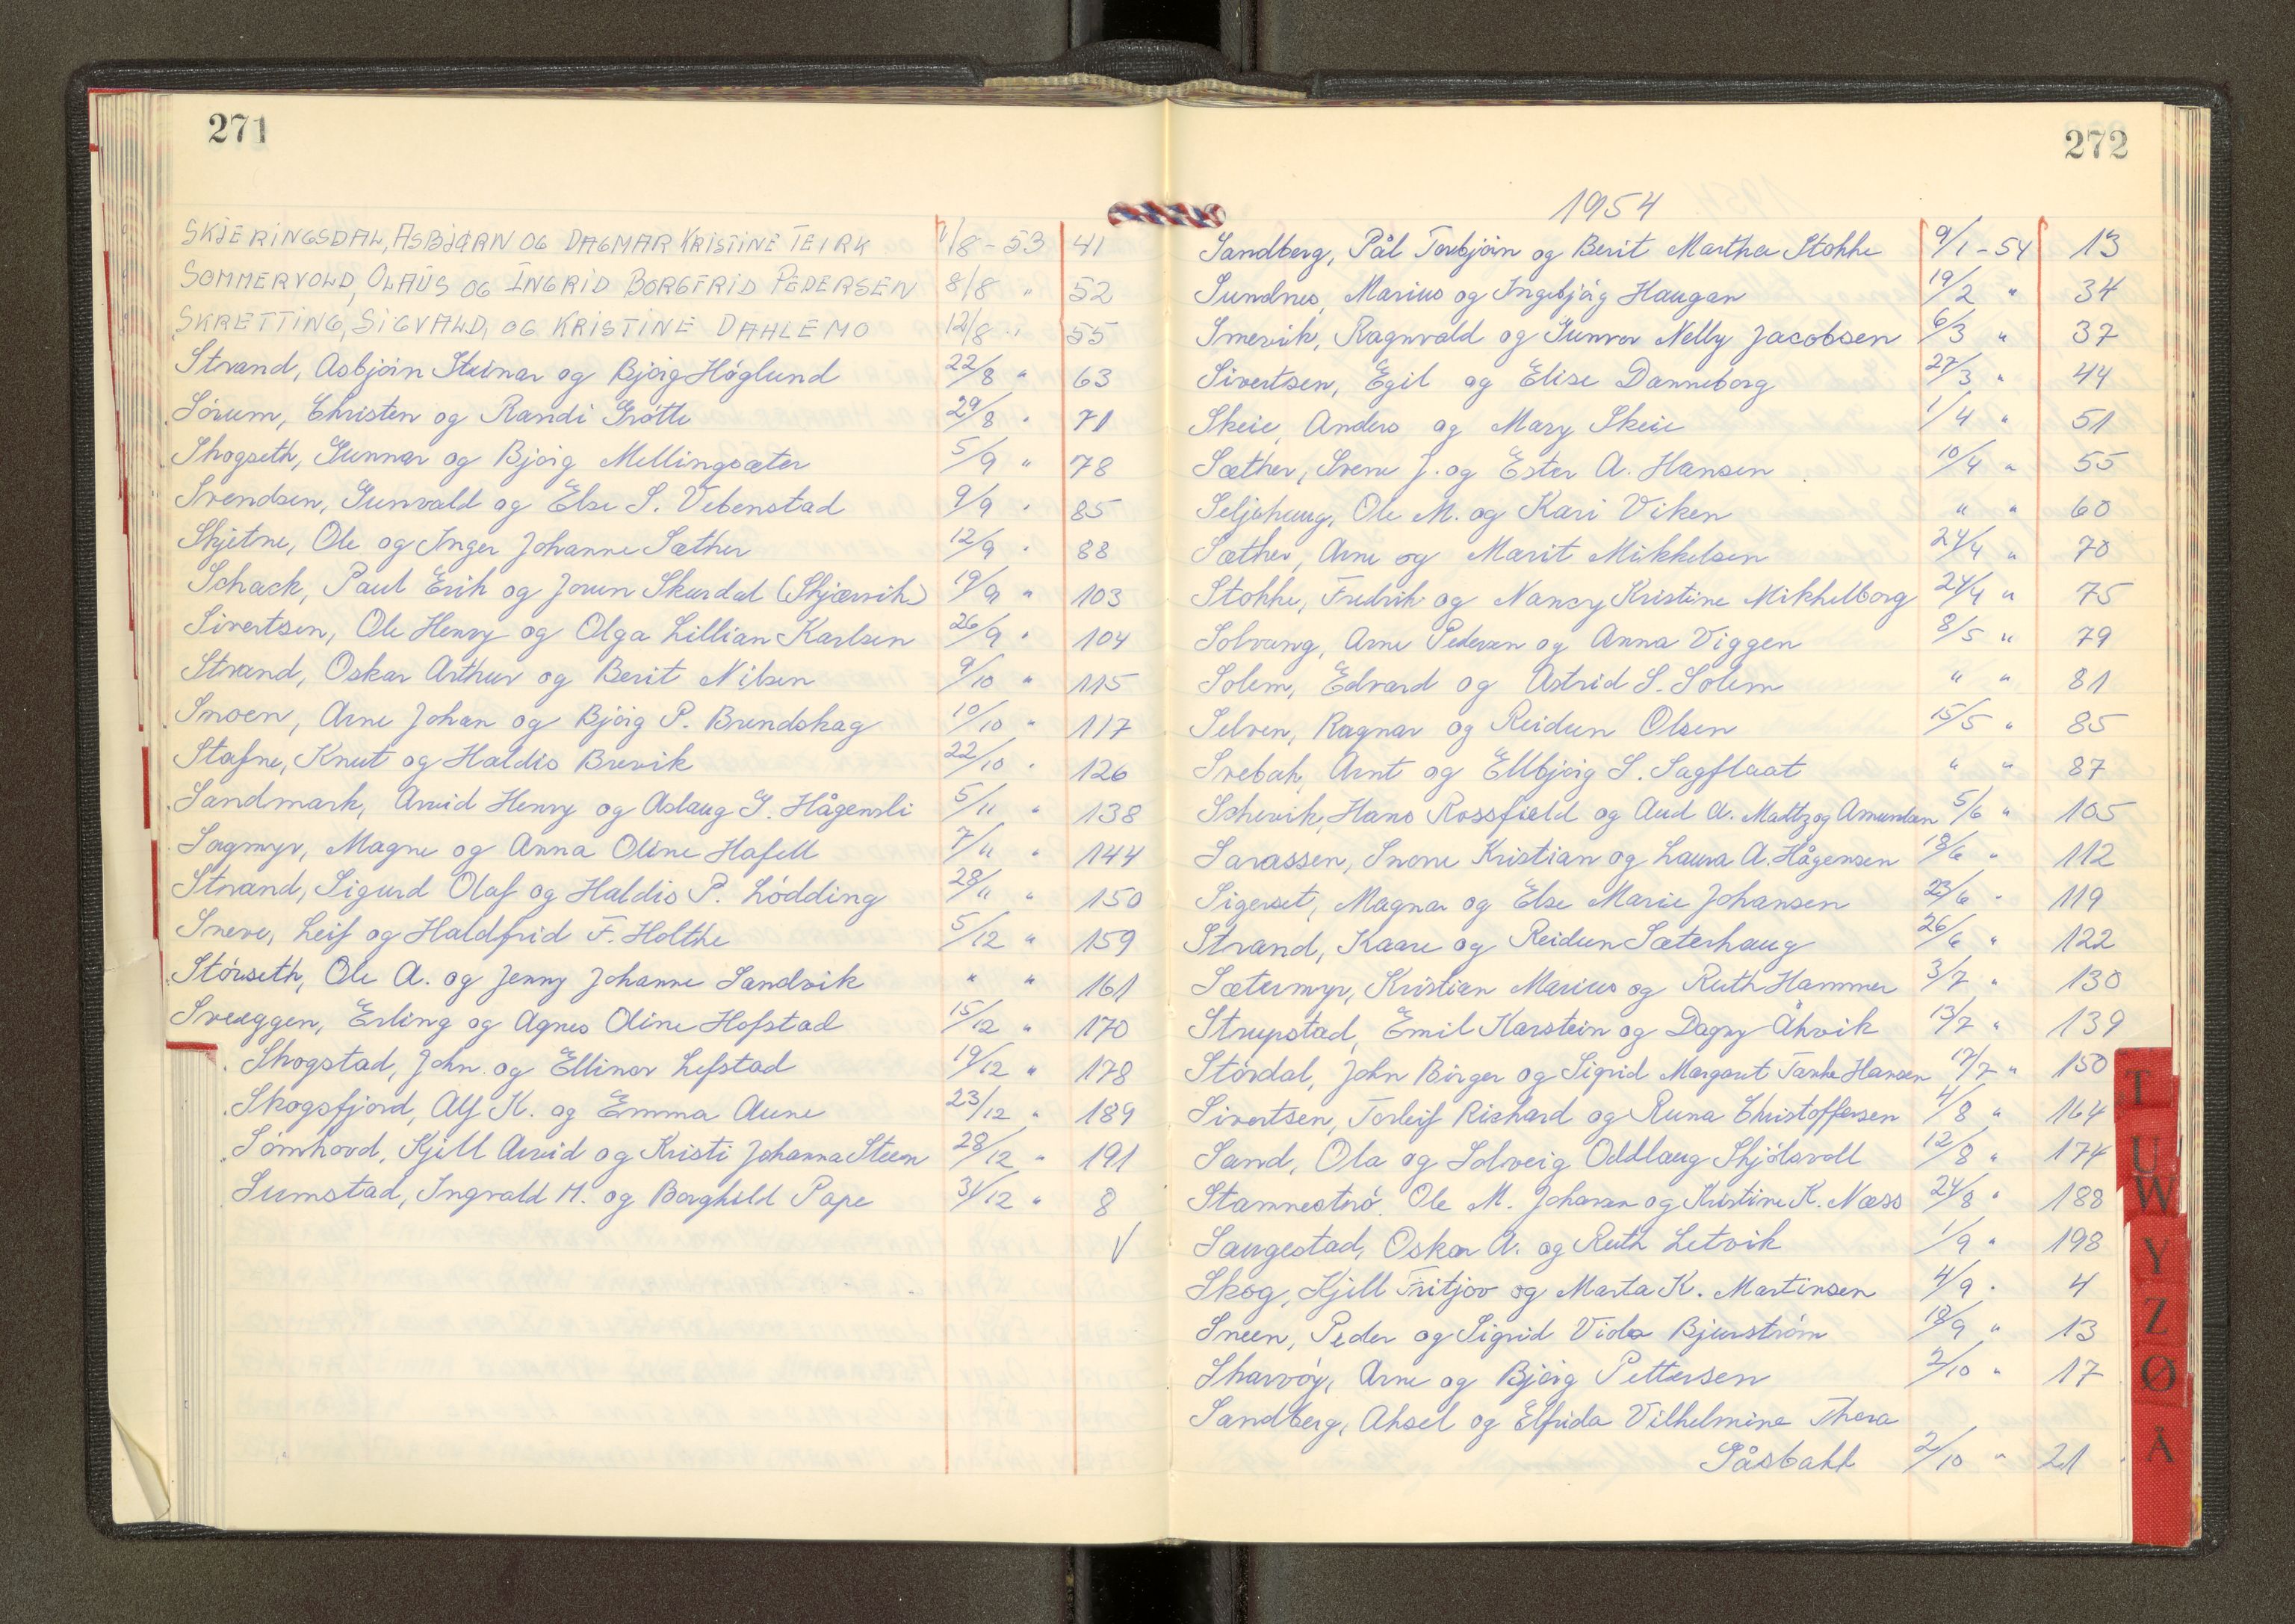 271
SKJERINGSDAL, ASBJØRN OG DAGMAR KRISTINE TEIRK 1/8-53 41
SOMMERVOLD, OLAUS OG INGRID BORGFRID PEDERSEN 8/8 " 52
SKRETTING, SIGVALD, OG KRISTINE DAHLEMO 12/8 " 55
Strand, Asbjørn Steinar og Bjørg Høglund 22/8 " 63
Sørum, Christen og Randi Grøtte 29/8 " 71
Skogseth, Gunnar og Bjørg Mellingsæter 5/9 " 78
Svendsen, Gunvald og Else S. Vebenstad 9/9 " 85
Skjetne, Ole og Inger Johanne Sæther 12/9 " 88
Schack, Paul Erik og Jorun Skurdal (Skjærvik) 19/9 " 103
Sivertsen, Ole Henry og Olga Lillian Karlsen 26/9 " 104
Strand, Oskar Arthur og Berit Nilsen 9/10 " 115
Snoen, Arne Johan og Bjørg P. Brendskag 10/10 " 117
Stafne, Knut og Haldis Brevik 22/10 " 126
Sandmark, Arvid Henry og Aslaug G. Hågensli 5/11 " 138
Sagmyr, Magne og Anna Oline Hafell 7/11 " 144
Strand, Sigurd Olaf og Haldis P. Lødding 28/11 " 150
Sneve, Leif og Haldfrid F. Holthe 5/12 " 159
Størseth, Ole A. og Jenny Johanne Sandvik " " 161
Sveggen, Erling og Agnes Oline Hofstad 15/12 " 170
Skogstad, John og Ellinor Lefstad 19/12 " 178
Skogsfjord, Alf K. og Emma Aune 23/12 " 189
Sømhovd, Kjell Arvid og Kristi Johanna Steen 28/12 " 191
Sumstad, Ingvald M. og Borghild Pape 31/12 " 8
V
272
1954
Sandberg, Pål Torbjørn og Berit Martha Stokke 9/1-54 13
Sundnes, Marius og Ingebjørg Haugan 19/2 " 34
Smevik, Ragnvald og Gunvor Nelly Jacobsen 6/3 " 37
Sivertsen, Egil og Elise Danneborg 27/3 " 44
Skeie, Anders og Mary Skeie 1/4 " 51
Sæther, Svene J. og Ester A. Hansen 10/4 " 55
Seljehaug, Ole M. og Kari Viken " " 60
Sæther, Arne og Marit Mikkelsen 24/4 " 70
Stokke, Fredrik og Nancy Kristine Mikkelborg 24/4 " 75
Solvang, Arne Pedersen og Anna Viggen 8/5 " 79
Solem, Edvard og Astrid S. Solem " " 81
Selven, Ragnar og Reidun Olsen 15/5 " 85
Svebak, Arnt og Ellbjørg S. Sagflaat " " 87
Schevik, Hans Rossfield og Aud A. Maltzog Amundsen 5/6 " 105
Sarassen, Snorre Kristian og Laura A. Hågensen 18/6 " 112
Sigerset, Magnar og Else Marie Johansen 23/6 " 119
Strand, Kaare og Reidun Sæterhaug 26/6 " 122
Sætermyr, Kristian Marius og Ruth Hammer 3/7 " 130
Strupstad, Emil Karstein og Dagny Åkvik 13/7 " 139
Stördal, John Birger og Sigrid Margaret Tanke Hansen 17/7 " 150
Sivertsen, Torleif Richard og Runa Christoffersen 4/8 " 164
Sand, Ola og Solveig Oddlaug Skjølsvoll 12/8 " 174
Stamnestrø, Ole M. Johansen og Kristine K. Næss 24/8 " 188
Saugestad, Oskar A. og Ruth Letvik 1/9 " 198
Skog, Kjell Fritjov og Marta K. Martinsen 4/9 " 4
Sneen, Peder og Sigrid Viola Bjurstrøm 18/9 " 13
Skarvøy, Arne og Bjørg Pettersen 2/10 " 17
Sandberg, Aksel og Elfrida Vilhelmine Thora
Påsbakk 2/10 " 21
T
U
W
Y
Z
Ø
Å